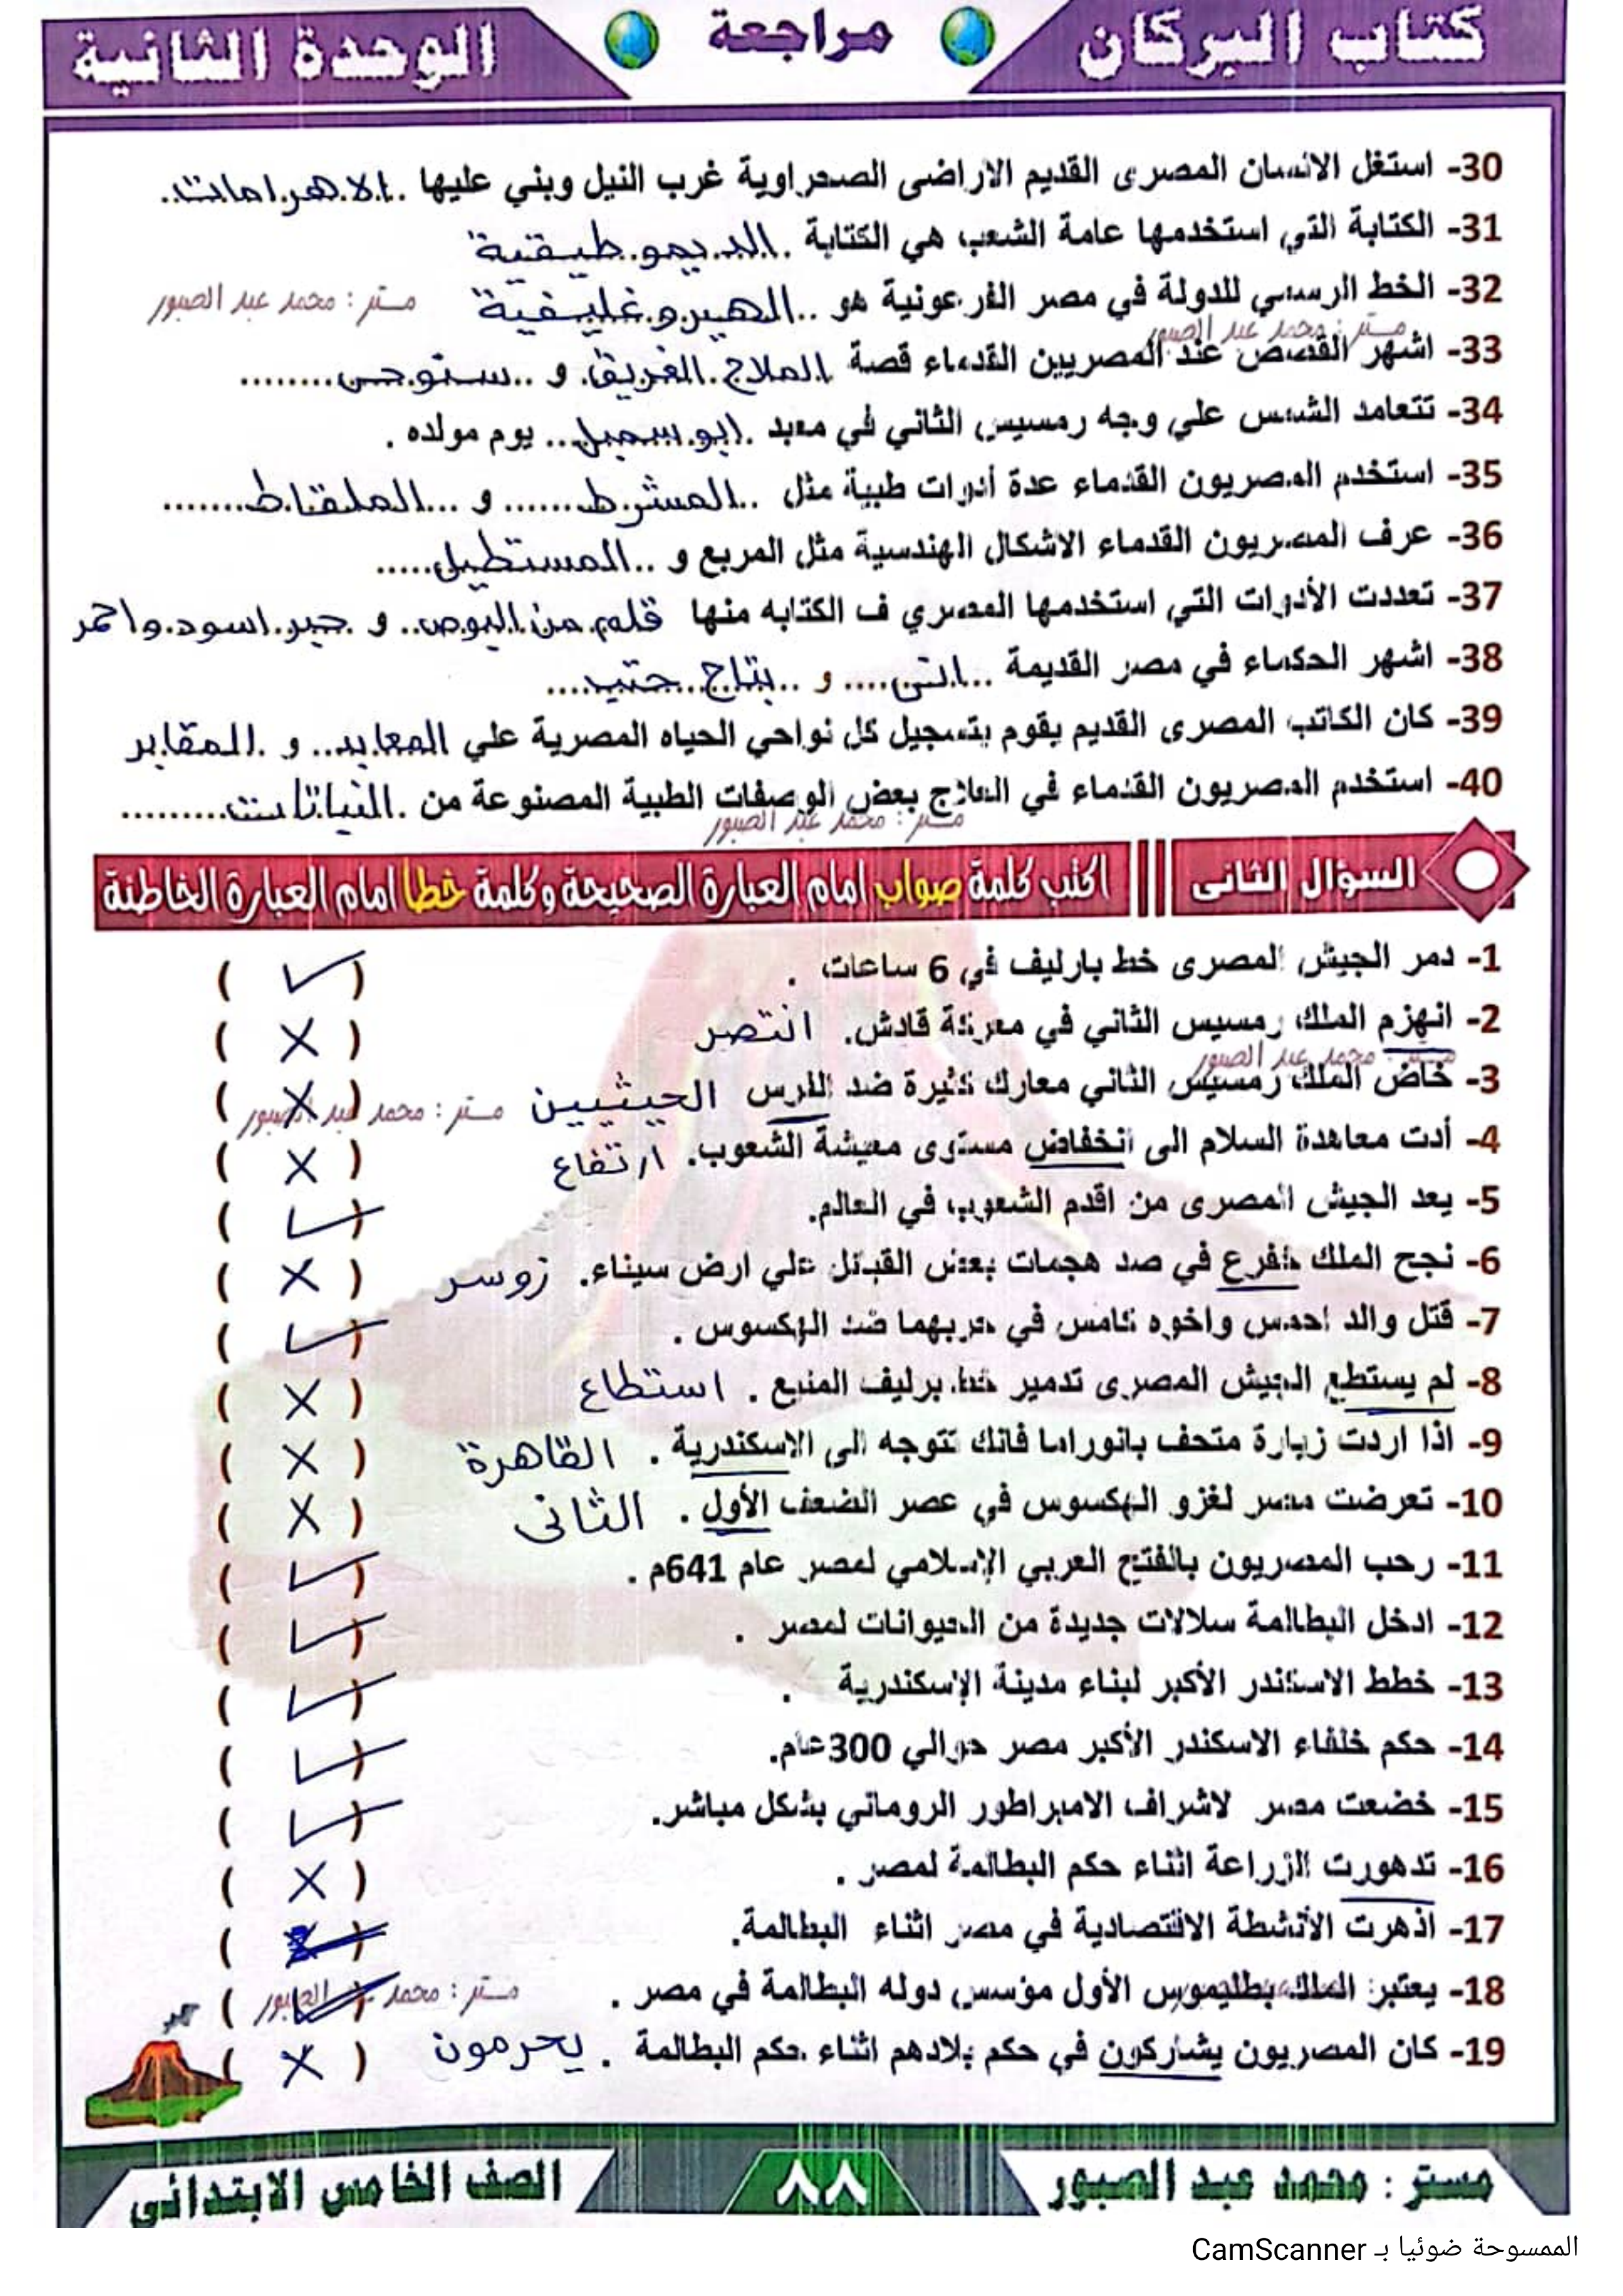 كتاب البركان
مراجعة
الوحدة الثانية
30- استغل الانسان المصرى القديم الاراضى الصحراوية غرب النيل وبني عليها .الاهرامات.
31- الكتابة التي استخدمها عامة الشعب هي الكتابة .الديموطيقية
32- الخط الرسمي للدولة في مصر الفرعونية هو ..الهيروغليفية
مستر : محمد عبد الصبور
مستر : محمد عبد الصبور
33- اشهر القصص عند المصريين القدماء قصة الملاح الغريق. و ..سنوحى........
34- تتعامد الشمس علي وجه رمسيس الثاني في معبد .ابو سمبل... يوم مولده .
35- استخدم المصريون القدماء عدة أدوات طبية مثل ..المشرط....... و ...الملقاط.......
36- عرف المصريون القدماء الاشكال الهندسية مثل المربع و ..المستطيل.....
37- تعددت الأدوات التي استخدمها المصري ف الكتابه منها قلم من البوص.. و حبر اسود واحمر
38- اشهر الحكماء في مصر القديمة ..انى.... و ..بتاح حتب....
39- كان الكاتب المصرى القديم يقوم بتسجيل كل نواحي الحياه المصرية علي المعابد... و .المقابر
40- استخدم المصريون القدماء في العلاج بعض الوصفات الطبية المصنوعة من .النباتات.........
مستر : محمد عبد الصبور
السؤال الثانى
اكتب كلمة صواب امام العبارة الصحيحة وكلمة خطا امام العبارة الخاطئة
1- دمر الجيش المصرى خط بارليف في 6 ساعات . ( ✓ )
2- انهزم الملك رمسيس الثاني في معركة قادش. انتصر ( X )
مستر : محمد عبد الصبور
3- خاض الملك رمسيس الثاني معارك كثيرة ضد الفرس الحيثيين ( X )
مستر : محمد عبد الصبور
4- أدت معاهدة السلام الى انخفاض مستوى معيشة الشعوب. ارتفاع ( X )
5- يعد الجيش المصرى من اقدم الشعوب في العالم. ( ✓ )
6- نجح الملك خفرع في صد هجمات بعض القبائل علي ارض سيناء. زوسر ( X )
7- قتل والد احمس واخوه كامس في حربهما ضد الهكسوس . ( ✓ )
8- لم يستطع الجيش المصرى تدمير خط برليف المنيع . استطاع ( X )
9- اذا اردت زيارة متحف بانوراما فانك تتوجه الى الاسكندرية . القاهرة ( X )
10- تعرضت مصر لغزو الهكسوس في عصر الضعف الأول . الثانى ( X )
11- رحب المصريون بالفتح العربي الإسلامي لمصر عام 641م . ( ✓ )
12- ادخل البطالمة سلالات جديدة من الحيوانات لمصر . ( ✓ )
13- خطط الاسكندر الأكبر لبناء مدينة الإسكندرية . ( ✓ )
14- حكم خلفاء الاسكندر الأكبر مصر حوالي 300عام. ( ✓ )
15- خضعت مصر لاشراف الامبراطور الروماني بشكل مباشر. ( ✓ )
16- تدهورت الزراعة اثناء حكم البطالمة لمصر . ( X )
17- اذهرت الأنشطة الاقتصادية في مصر اثناء البطالمة. ( ✓ )
18- يعتبر الملك بطليموس الأول مؤسس دوله البطالمة في مصر . ( ✓ )
مستر : محمد عبد الصبور
19- كان المصريون يشاركون في حكم بلادهم اثناء حكم البطالمة . يحرمون ( X )
مستر : محمد عبد الصبور
٨٨
الصف الخامس الابتدائى
الممسوحة ضوئيا بـ CamScanner